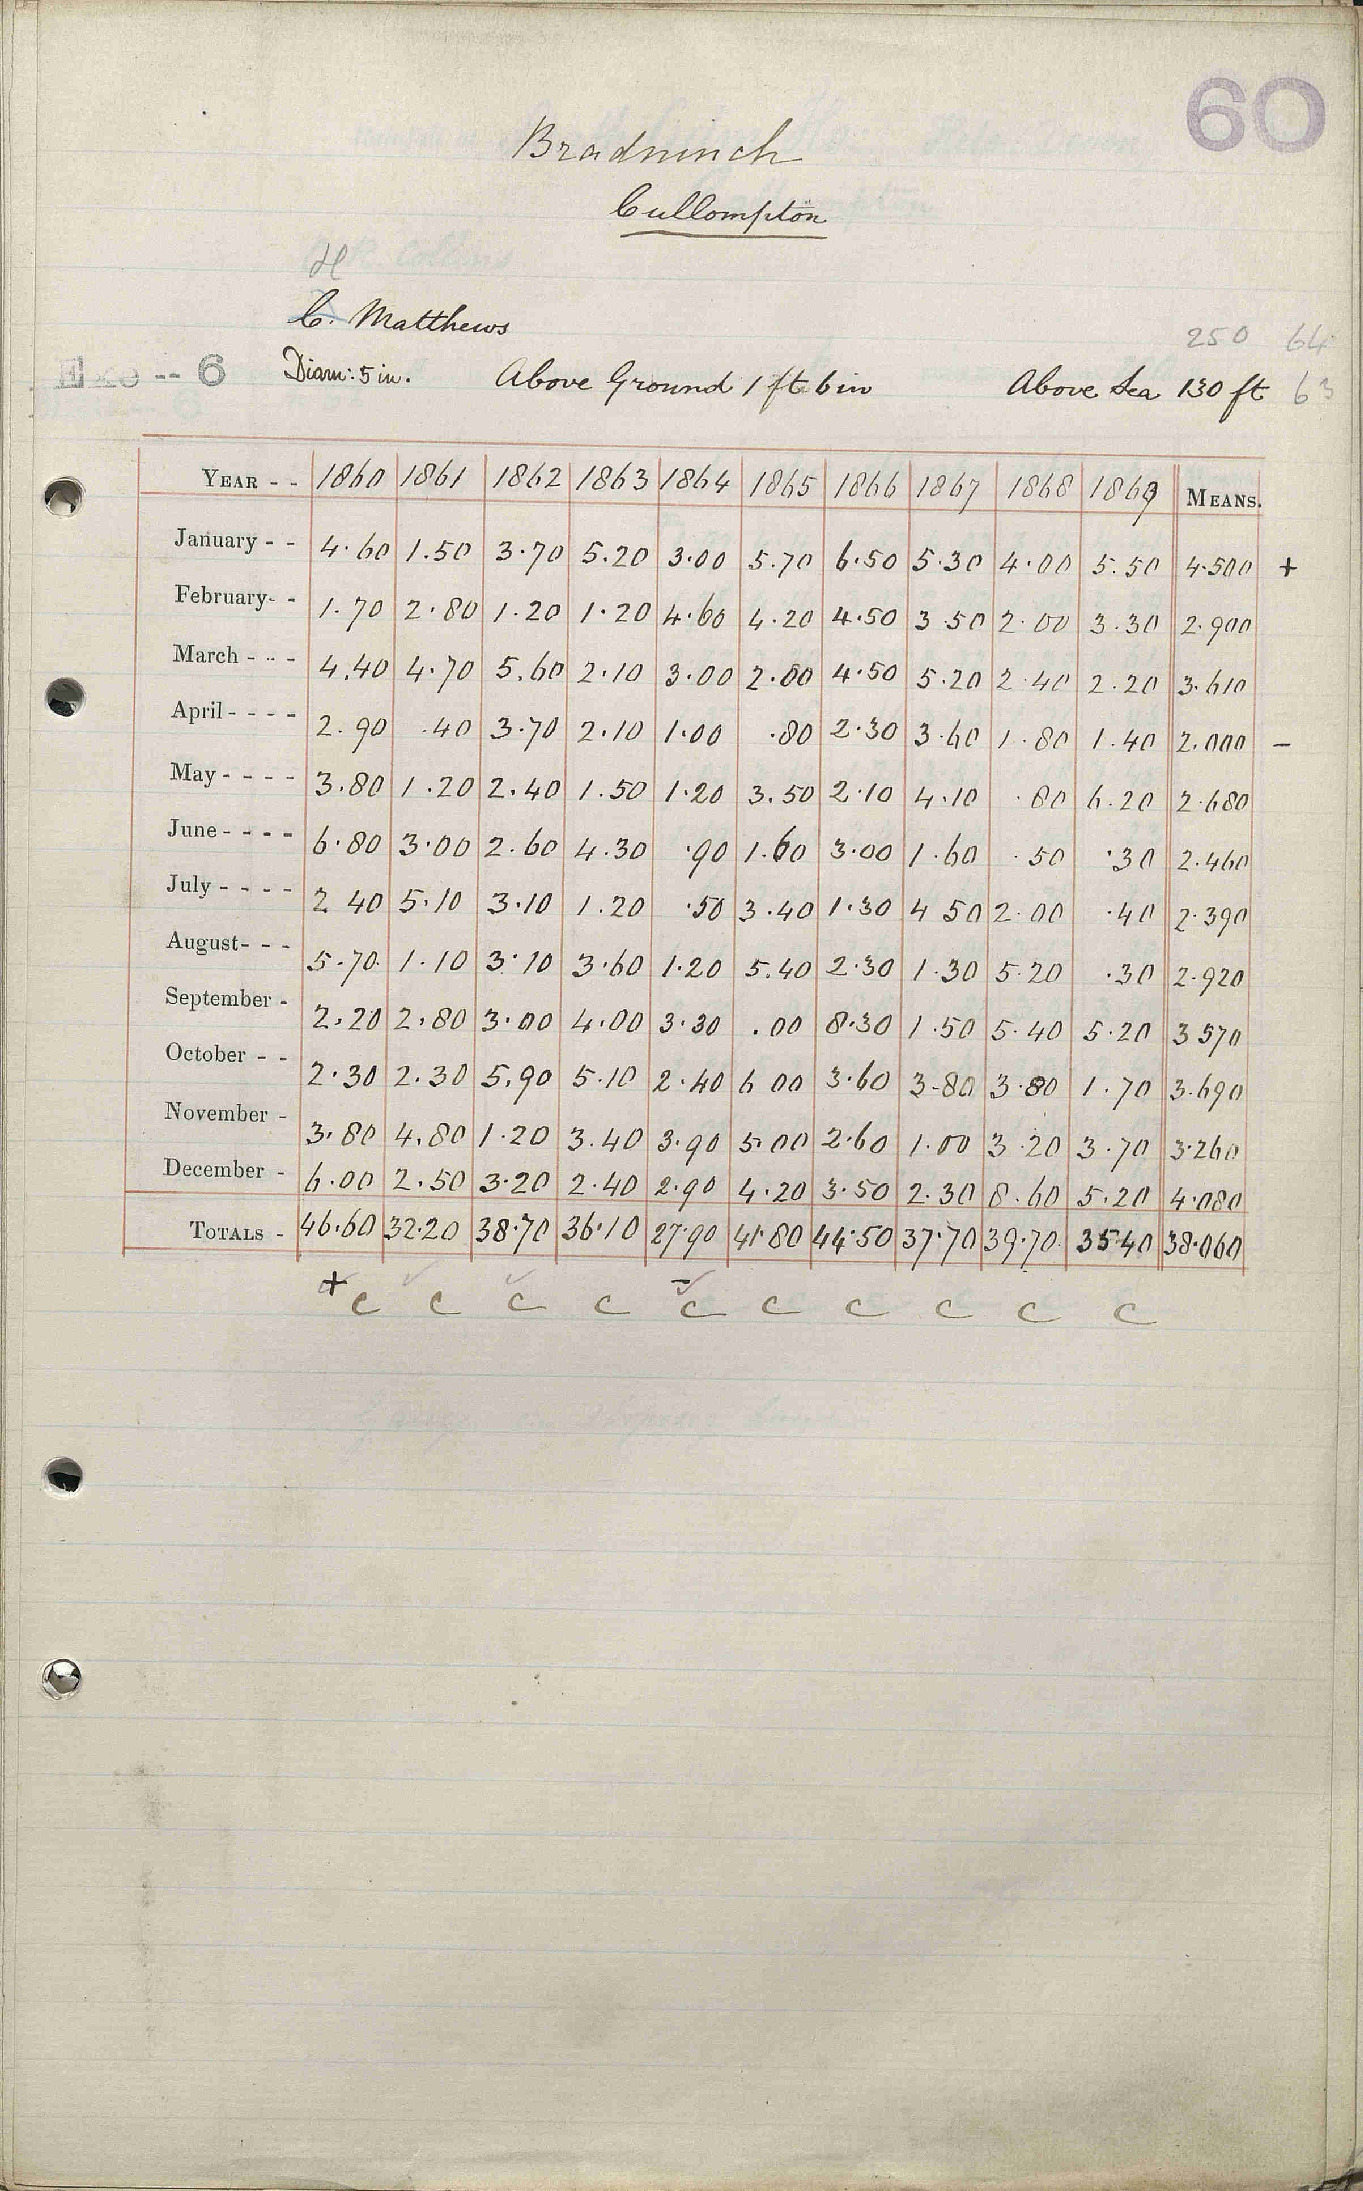 60
Bradninch
Cullompton
H
C. Matthews
250 64
Exe -- 6 Diam: 5 in. Above Ground 1 ft 6 in Above Sea 130 ft 63
YEAR - - 1860 1861 1862 1863 1864 1865 1866 1867 1868 1869 MEANS.
January - - 4.60 1.50 3.70 5.20 3.00 5.70 6.50 5.30 4.00 5.50 4.500 +
February- - 1.70 2.80 1.20 1.20 4.60 4.20 4.50 3 50 2.00 3.30 2.900
March - - - 4.40 4.70 5.60 2.10 3.00 2.80 4.50 5.20 2.40 2.20 3.610
April - - - - 2.90 .40 3.70 2.10 1.00 .80 2.30 3.60 1.80 1.40 2.000 -
May - - - - 3.80 1.20 2.40 1.50 1.20 3.50 2.10 4.10 .80 6.20 2.680
June - - - - 6.80 3.00 2.60 4.30 .90 1.60 3.00 1.60 .50 .30 2.460
July - - - - 2 40 5.10 3.10 1.20 .50 3.40 1.30 4 50 2.00 .40 2.390
August- - - 5.70 1.10 3.10 3.60 1.20 5.40 2.30 1.30 5.20 .30 2.920
September - 2.20 2.80 3.00 4.00 3.30 .00 8.30 1.50 5.40 5.20 3 570
October - - 2.30 2.30 5.90 5.10 2.40 6 00 3.60 3.80 3.80 1.70 3.690
November - 3.80 4.80 1.20 3.40 3.90 5.00 2.60 1.00 3.20 3.70 3.260
December - 6.00 2.50 3.20 2.40 2.90 4.20 3.50 2.30 8.60 5.20 4.080
TOTALS - 46.60 32.20 38.70 36.10 27.90 41.80 44.50 37.70 39.70 35.40 38.060
+ c c c c - c c c c c c